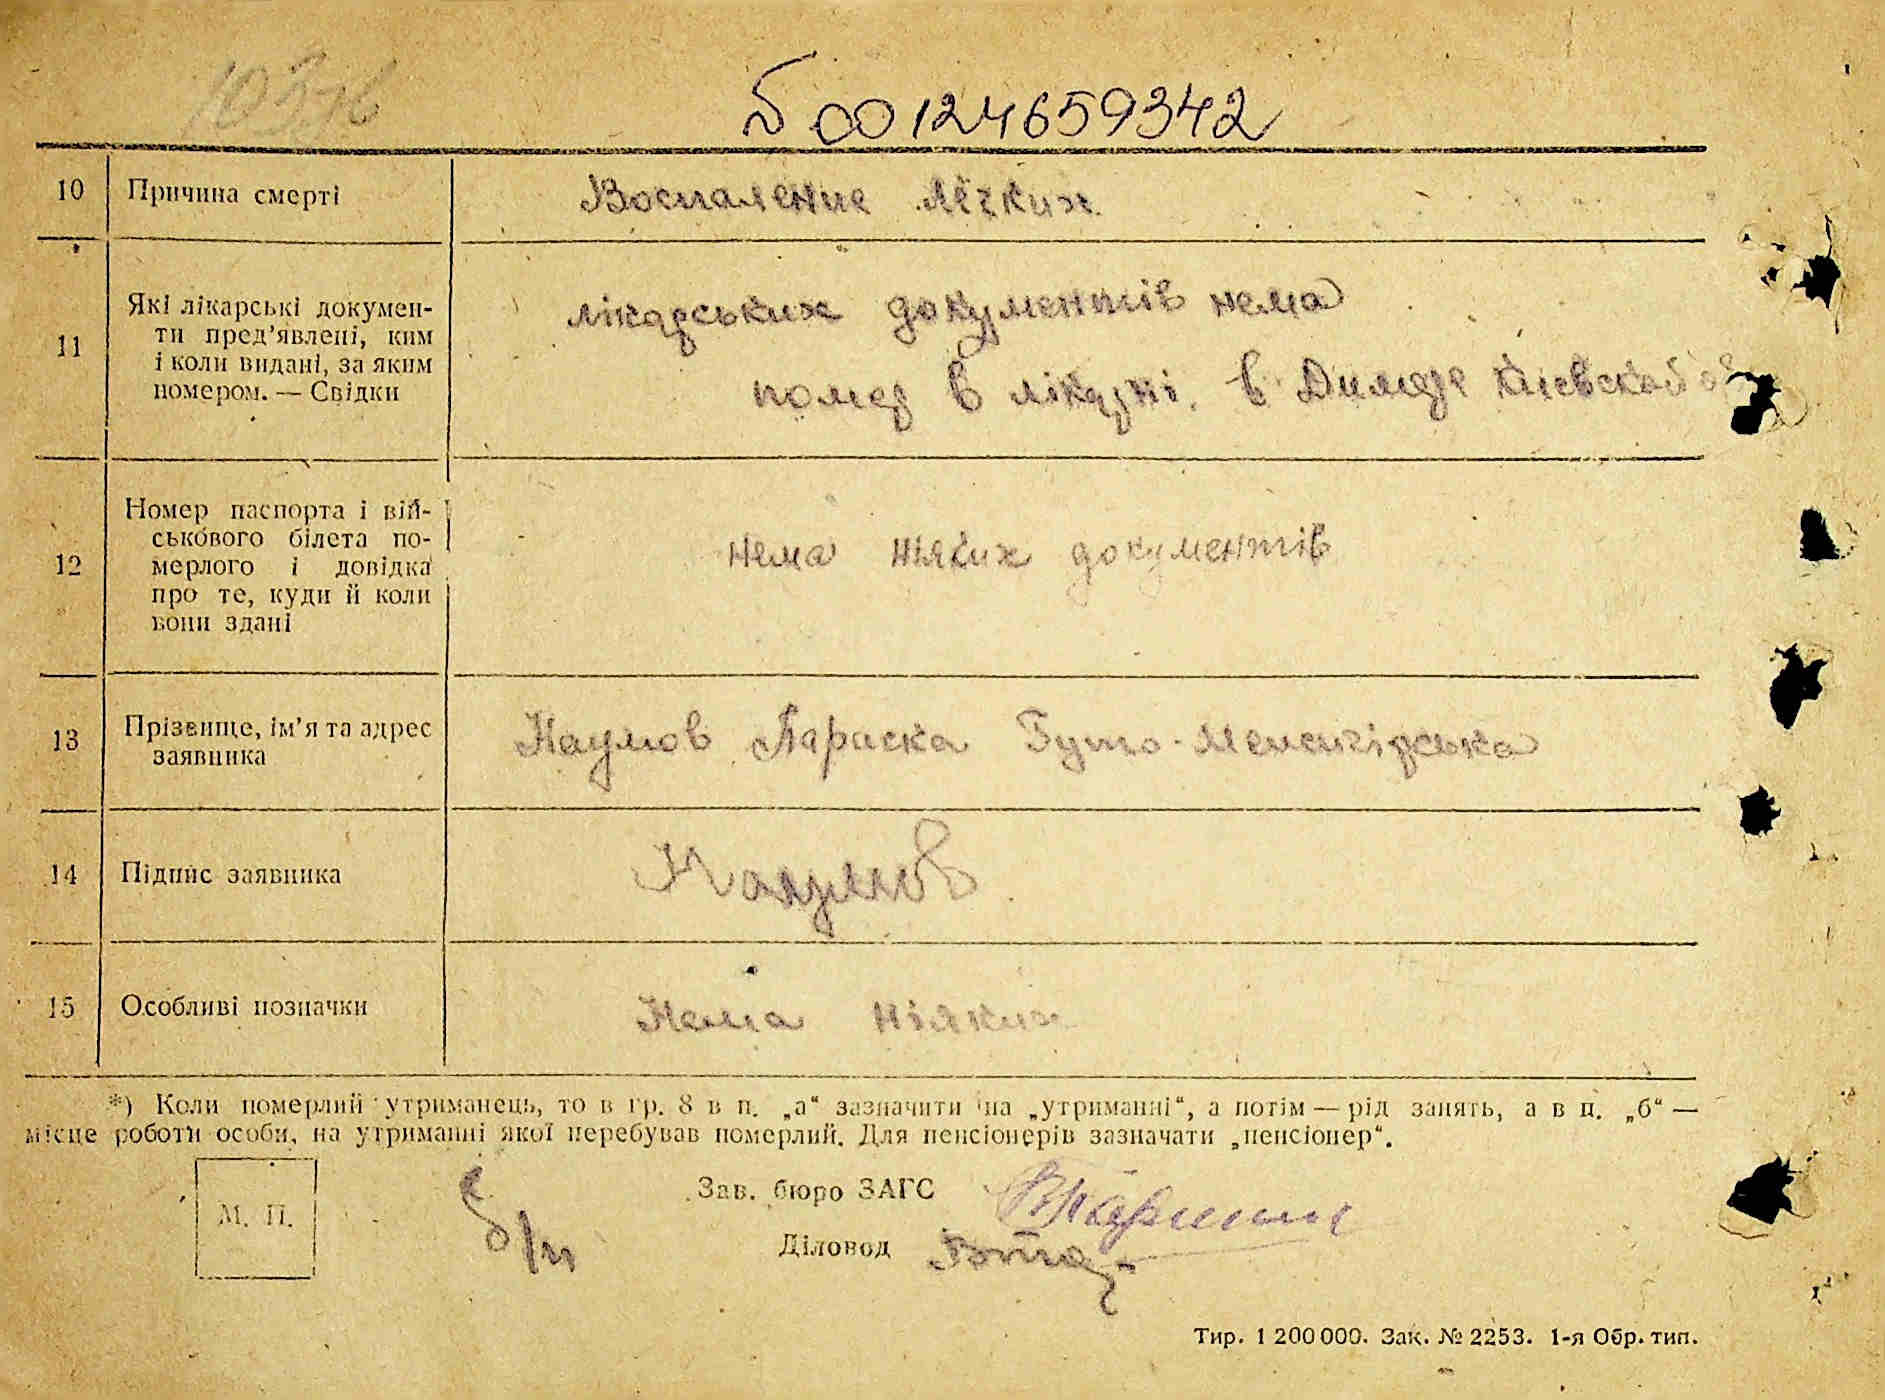 Б 00124659342
10 Причина смерті Воспаление лёгких
11 Які лікарські докумен-
ти пред'явлені, ким
і коли видані, за яким
номером. — Свідки
лікарських документів нема
помер в лікарні. в Димере Киевской
12 Номер паспорта і вій-
ськового білета по-
мерлого і довідка
про те, куди й коли
вони здані
нема ніяких документів
13 Прізвище, ім'я та адрес
заявника
Наумов Параска Гуто-Межигірська
14 Підпис заявника Наумов
15 Особливі позначки Нема ніяких
*) Коли померлий утриманець, то в гр. 8 в п. „а“ зазначити на „утриманні“, а потім — рід занять, а в п. „б“ —
місце роботи особи, на утриманні якої перебував померлий. Для пенсіонерів зазначати „пенсіонер“.
М. П.
б/п
Зав. бюро ЗАГС
Діловод
Тир. 1 200 000. Зак. № 2253. 1-я Обр. тип.